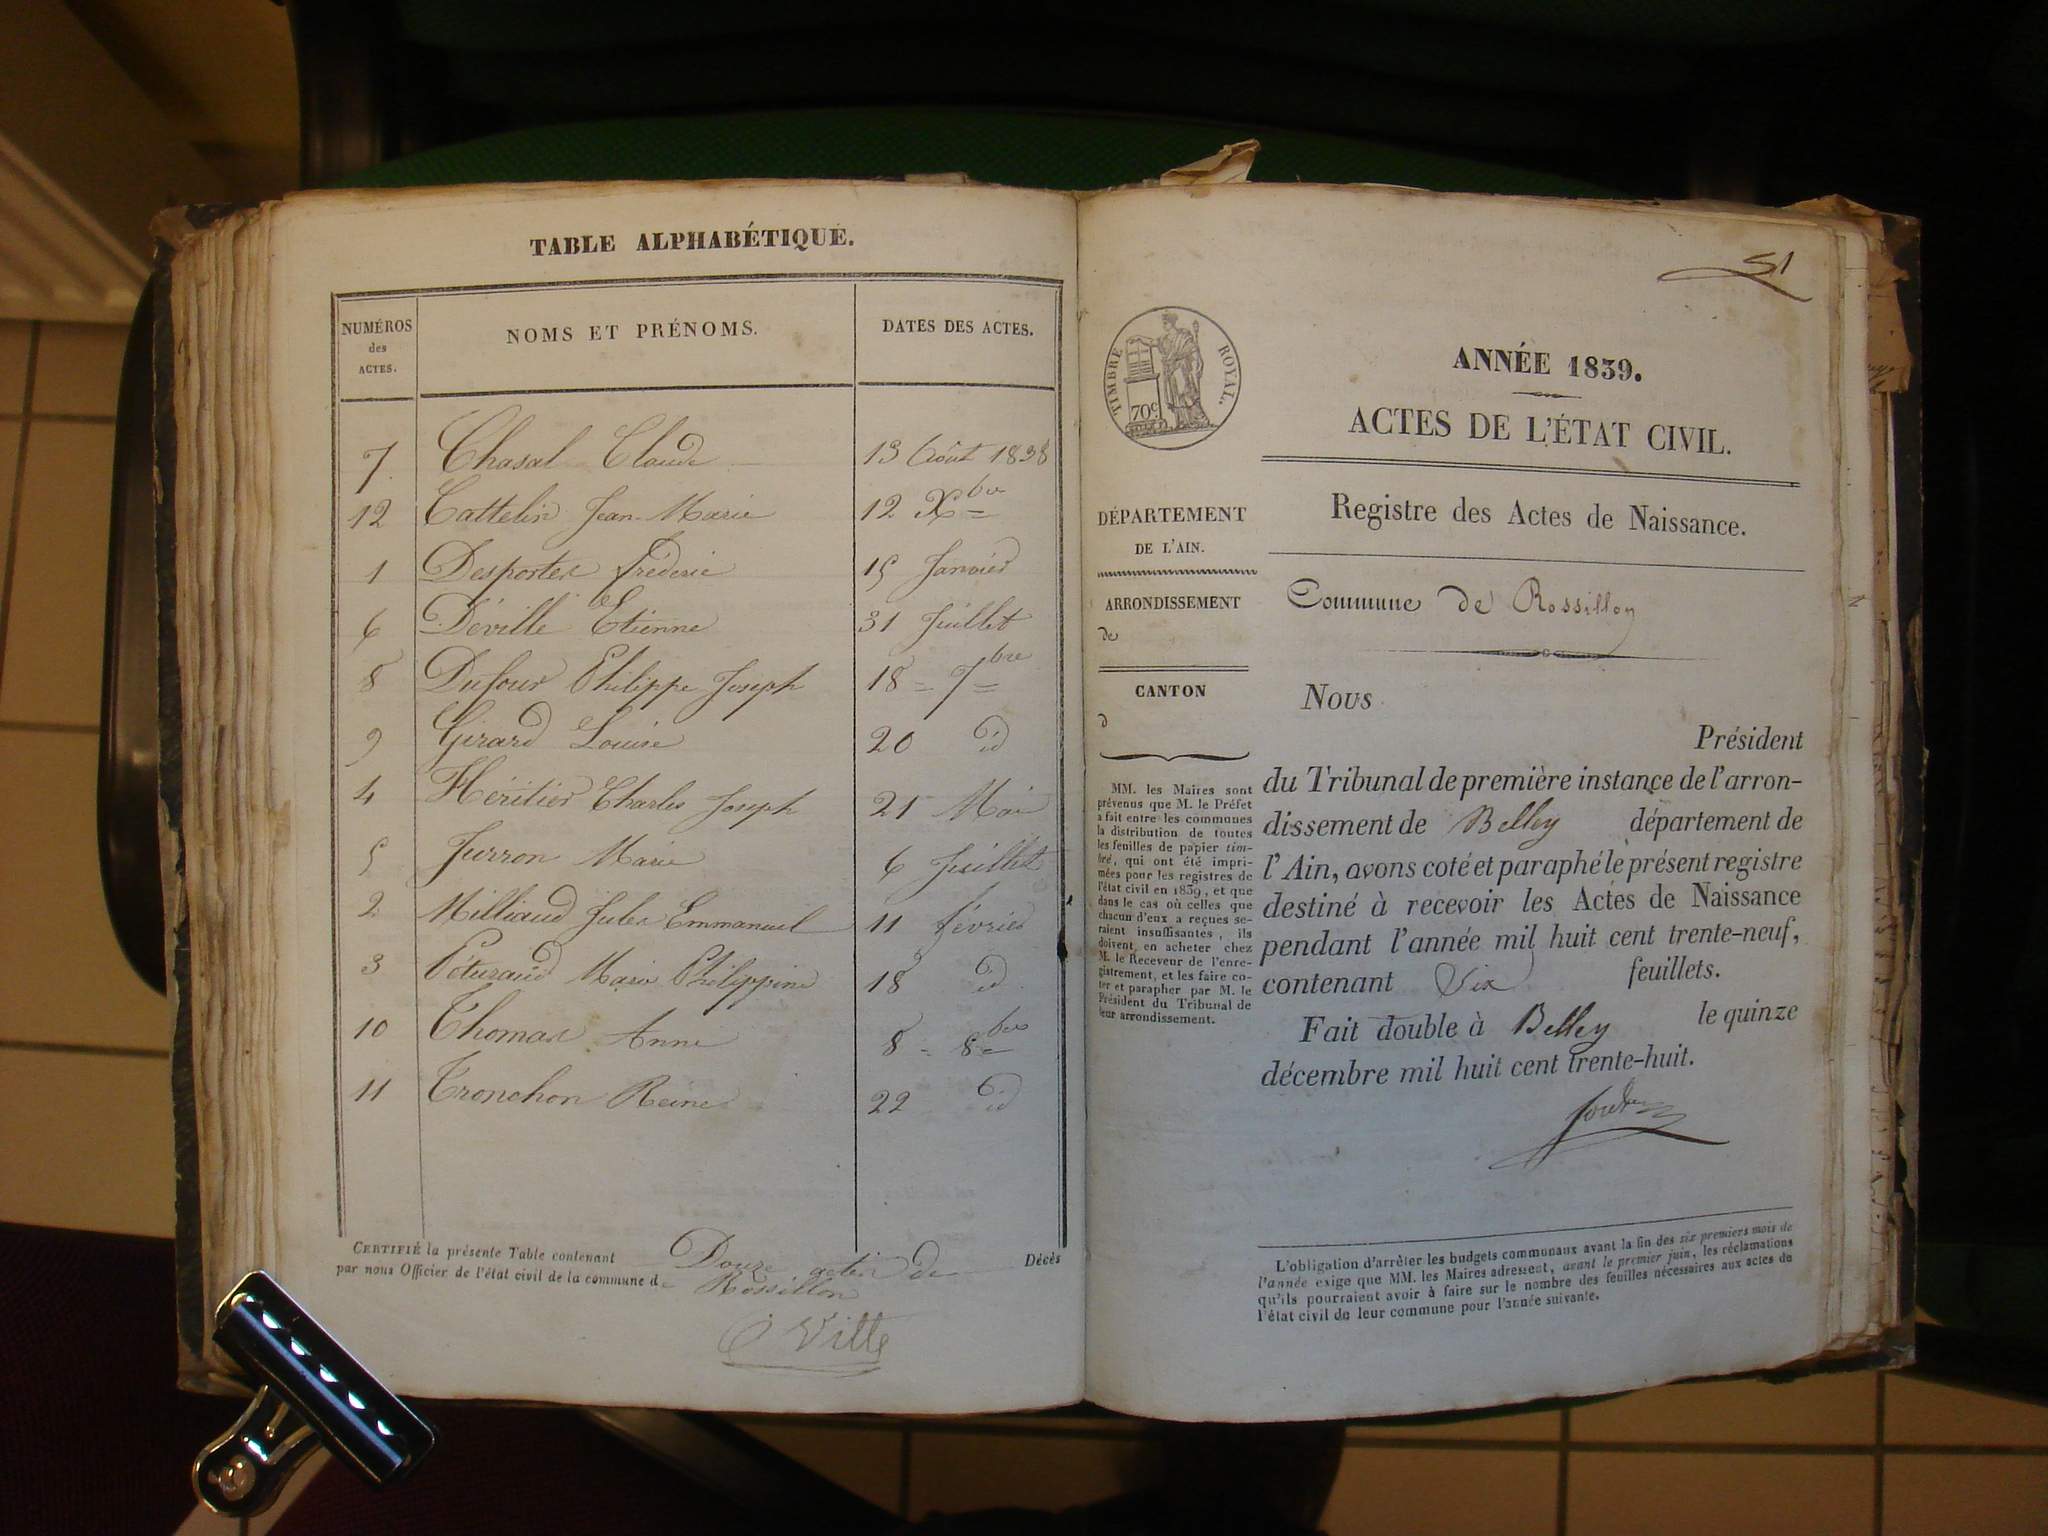 TABLE ALPHABÉTIQUE.
NUMÉROS des ACTES. NOMS ET PRÉNOMS. DATES DES ACTES.
7 Chasal Claude 13 Août 1838
12 Cattelin Jean-Marie 12 Xbre
1 Desportes frédéric 15 Janvier
6 Déville Etienne 31 Juillet
8 Dufour Philippe Joseph 18 7bre
9 Girard Louise 20 id
4 Héritier Charles Joseph 21 Mai
5 Jurron Marie 6 Juillet
2 Milliaud Jules Emmanuel 11 février
3 Péturaud Marie Philippine 18 id
10 Thomas Anne 8 8bre
11 Tronchon Reine 22 id
CERTIFIÉ la présente Table contenant Douze actes de Décès
par nous Officier de l'état civil de la commune de Rossillon
Ville
51
TIMBRE ROYAL.
70c
ANNÉE 1839.
ACTES DE L'ÉTAT CIVIL.
DÉPARTEMENT
DE L'AIN.
ARRONDISSEMENT
de
CANTON
d
MM. les Maires sont
prévenus que M. le Préfet
a fait entre les communes
la distribution de toutes
les feuilles de papier tim-
bré, qui ont été impri-
mées pour les registres de
l'état civil en 1839, et que
dans le cas où celles que
chacun d'eux a reçues se-
raient insuffisantes, ils
doivent en acheter chez
M. le Receveur de l'enre-
gistrement, et les faire co-
ter et parapher par M. le
Président du Tribunal de
leur arrondissement.
Registre des Actes de Naissance.
Commune de Rossillon
Nous
Président
du Tribunal de première instance de l'arron-
dissement de Belley département de
l'Ain, avons coté et paraphé le présent registre
destiné à recevoir les Actes de Naissance
pendant l'année mil huit cent trente-neuf,
contenant Six feuillets.
Fait double à Belley le quinze
décembre mil huit cent trente-huit.
L'obligation d'arrêter les budgets communaux avant la fin des six premiers mois de
l'année exige que MM. les Maires adressent, avant le premier juin, les réclamations
qu'ils pourraient avoir à faire sur le nombre des feuilles nécessaires aux actes de
l'état civil de leur commune pour l'année suivante.